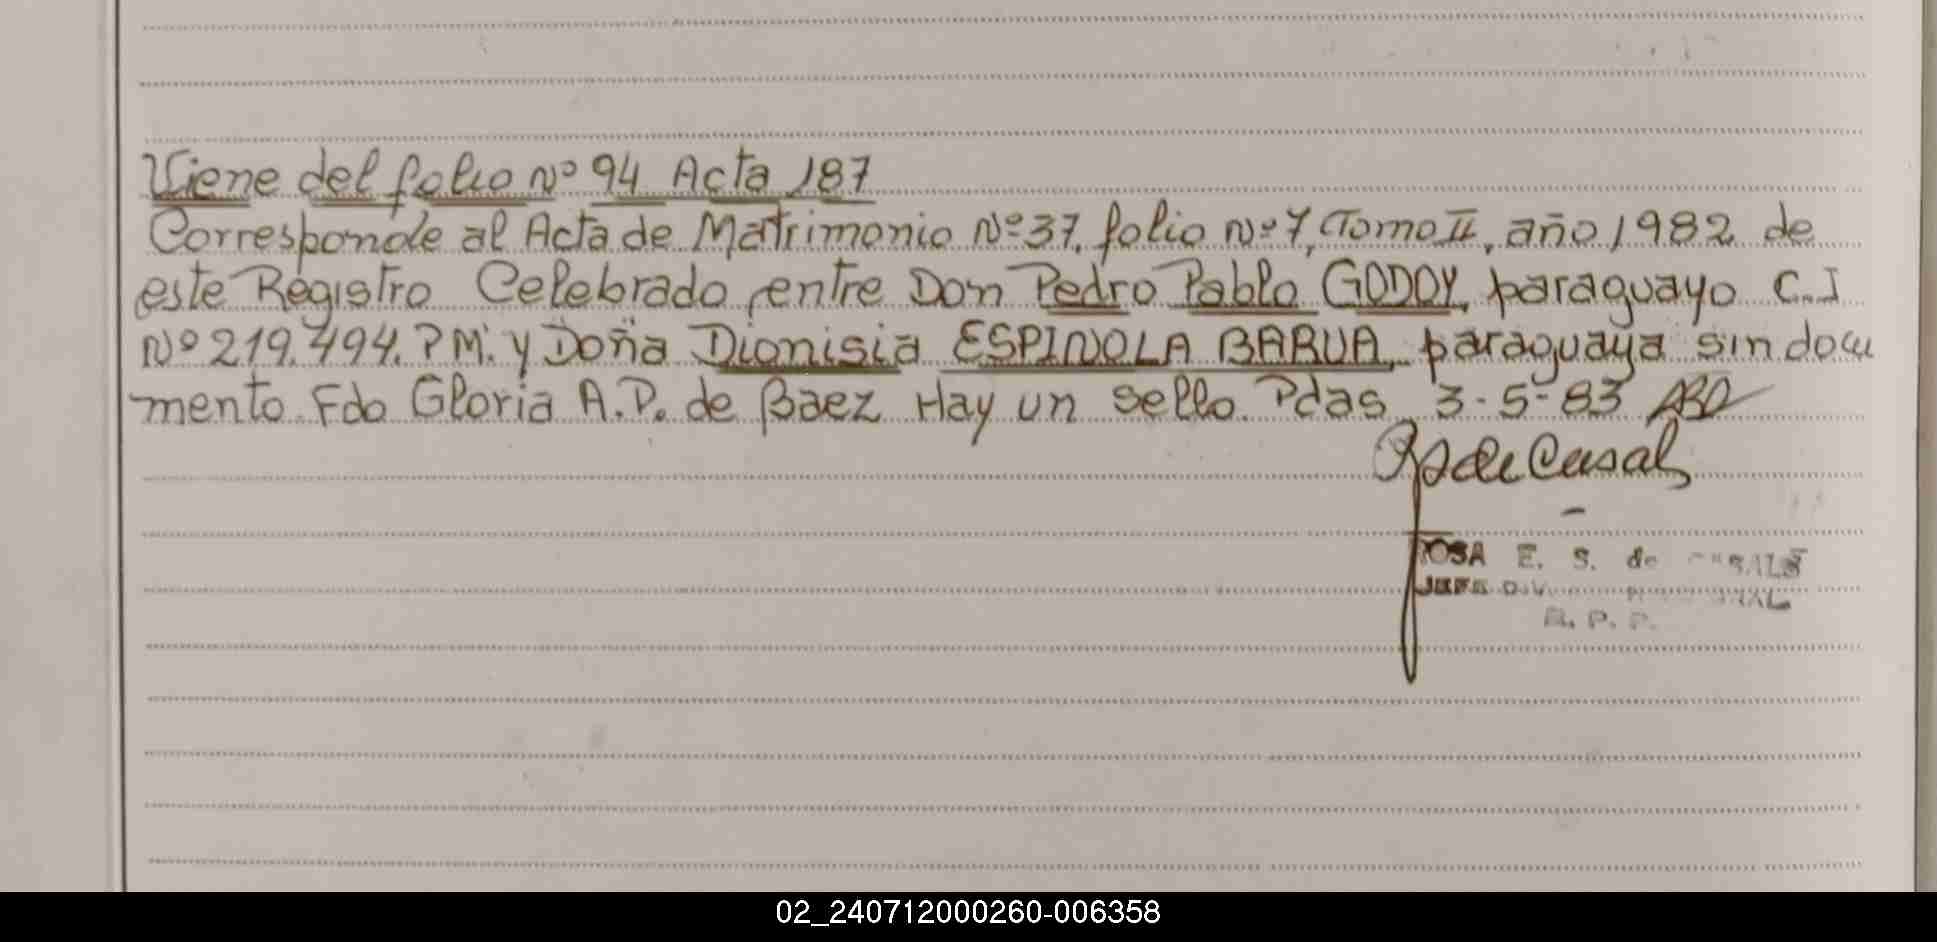 Viene del folio Nº 94 Acta 187
Corresponde al Acta de Matrimonio Nº 37, folio Nº 7, Tomo II, año 1982 de
este Registro Celebrado entre Don Pedro Pablo GODOY, paraguayo C.I
Nº 219.494. P M. y Doña Dionisia ESPINOLA BARUA, paraguaya sin docu
mento Fdo Gloria A.D. de Baez Hay un sello. Pdas 3-5-83
de Casal
ROSA E. S. de
JEFE DIV
R. P. P.
02_240712000260-006358